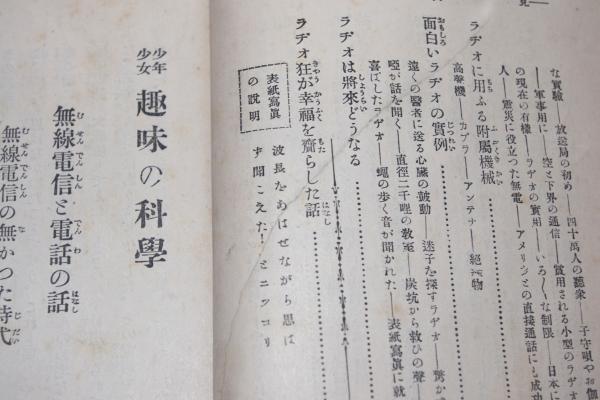 見
な實驗──放送局の初め──四十萬人の聽衆──子守唄やお伽
──軍事用に──空と下界の通信──實用される小型のラヂオ
の現在の有樣──ラヂオの實用──いろ〳〵な制限──日本に
人──震災に役立つた無電──アメリカとの直接通話にも成功
ラヂオに用ふる附屬機械
高聲機──カプラー──アンテナ──絕緣物
面白いラヂオの實例
遠くの醫者に送る心臟の鼓動──迷子を探すラヂオ──驚か
啞が話を聞く──直徑二千哩の敎室──炭坑から救ひの聲──
喜ばしたラヂオ──蠅の步く音が聞かれた──表紙寫眞に就
ラヂオは將來どうなる
ラヂオ狂が幸福を齎らした話
表紙寫眞の說明
波長をあはせながら思は
ず聞こえた！とニツコリ
少年少女 趣味の科學
無線電信と電話の話
無線電信の無かつた時代